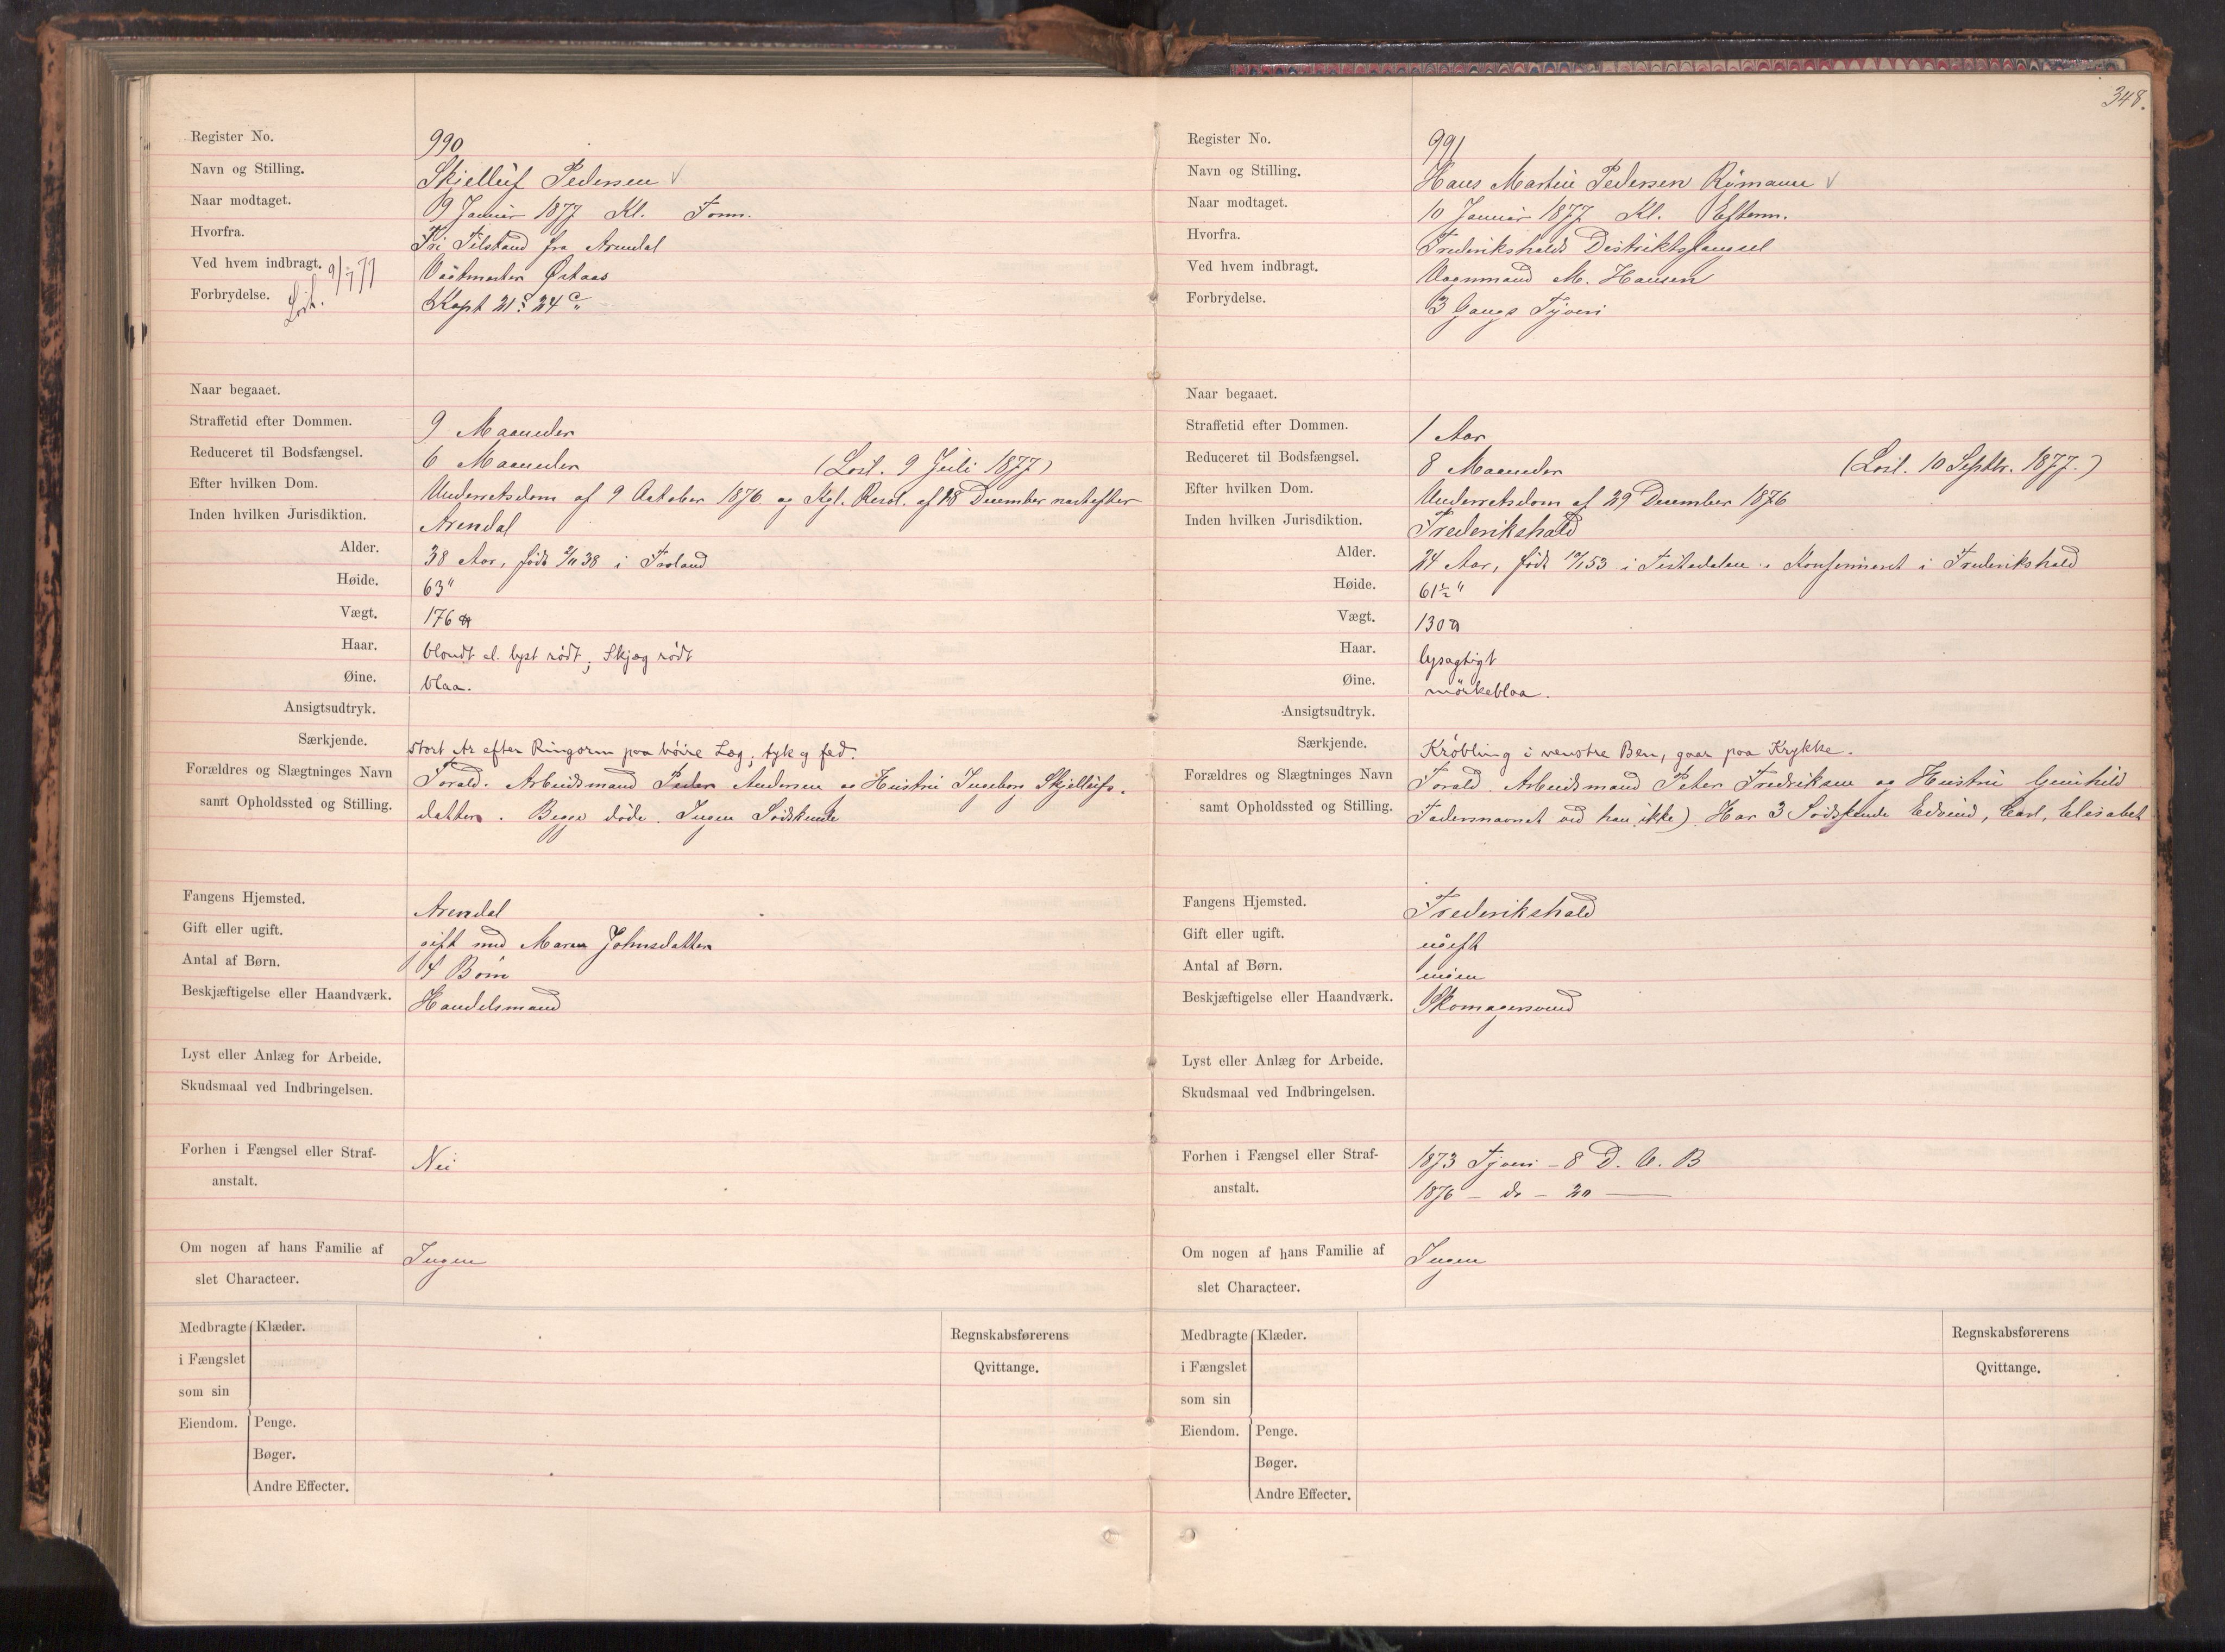 Register No. 990
Navn og Stilling. Skjelluf Pedersen √
Naar modtaget. 9 Januar 1877 Kl. Form.
Hvorfra. Fri Tilstand fra Arendal
Ved hvem indbragt. Vagtmester Østaas
Forbrydelse. Kapt 21 § 24 c
Løsl. 9/7 77
Naar begaaet.
Straffetid efter Dommen. 9 Maaneder
Reduceret til Bodsfængsel. 6 Maaneder (Løsl. 9 Juli 1877)
Efter hvilken Dom. Underretsdom af 9 October 1876 og Kgl. Resol. af 18 December næstefter
Inden hvilken Jurisdiktion. Arendal
Alder. 38 Aar, født 2/11 38 i Froland
Høide. 63"
Vægt. 176 ℔
Haar. blondt el. lyst rødt; Skjæg rødt
Øine. blaa.
Ansigtsudtryk.
Særkjende. stort Ar efter Ringorm paa høire Læg; tyk og fed.
Forældres og Slægtninges Navn Forald. Arbeidsmand Peder Andersen og Hustru Ingeborg Skjellufs-
samt Opholdssted og Stilling. datter. Begge døde. Ingen Sødskende
Fangens Hjemsted. Arendal
Gift eller ugift. gift med Maren Johnsdatter
Antal af Børn. 4 Børn
Beskjæftigelse eller Haandværk. Handelsmand
Lyst eller Anlæg for Arbeide.
Skudsmaal ved Indbringelsen.
Forhen i Fængsel eller Straf- Nei
anstalt.
Om nogen af hans Familie af Ingen
slet Characteer.
Medbragte Klæder. Regnskabsførerens
i Fængslet Qvittange.
som sin
Eiendom. Penge.
Bøger.
Andre Effecter.
348.
Register No. 991
Navn og Stilling. Hans Martin Pedersen Rømann √
Naar modtaget. 10 Januar 1877 Kl. Efterm.
Hvorfra. Frederikshalds Distriktsfængsel
Ved hvem indbragt. Vognmand M. Hansen
Forbrydelse. 3 Gangs Tyveri
Naar begaaet.
Straffetid efter Dommen. 1 Aar
Reduceret til Bodsfængsel. 8 Maaneder (Løsl. 10 Septbr. 1877.)
Efter hvilken Dom. Underretsdom af 29 December 1876
Inden hvilken Jurisdiktion. Frederikshald
Alder. 24 Aar, født 10/1 53 i Tistedalen. Konfirmeret i Frederikshald
Høide. 61½"
Vægt. 130 ℔
Haar. lysagtigt
Øine. mørkeblaa.
Ansigtsudtryk.
Særkjende. Krøbling i venstre Ben, gaar paa Krykke.
Forældres og Slægtninges Navn Forald. Arbeidsmand Peter Fredriksen og Hustru Gunhild
samt Opholdssted og Stilling. Fadersnavnet ved han ikke) Har 3 Sødskende Edvind, Carl, Elisabet
Fangens Hjemsted. Frederikshald
Gift eller ugift. ugift
Antal af Børn. ingen
Beskjæftigelse eller Haandværk. Skomagersvend
Lyst eller Anlæg for Arbeide.
Skudsmaal ved Indbringelsen.
Forhen i Fængsel eller Straf- 1873 Tyveri - 8 D. V. B
anstalt. 1876 - do - 20 —
Om nogen af hans Familie af Ingen
slet Characteer.
Medbragte Klæder. Regnskabsførerens
i Fængslet Qvittange.
som sin
Eiendom. Penge.
Bøger.
Andre Effecter.